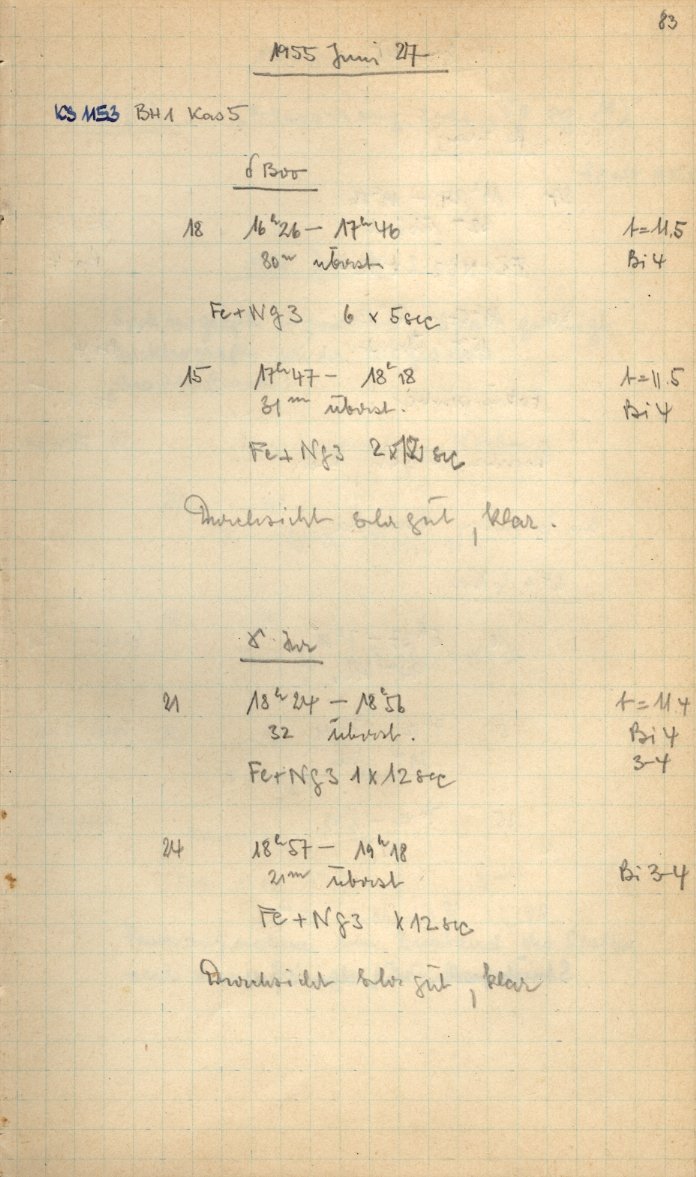 83
1955 Juni 27
KS 1153 BH1 Kas 5
δ Boo
18 16h26 – 17h46 t=11.5
80m überst. Bi 4
Fe+Ng3 6 x 5sec
15 17h47 – 18h18 t=11.5
31m überst. Bi 4
Fe+Ng3 2x12 sec
Durchsicht sehr gut, klar.
γ
21 18h24 – 18h56 t=11.4
32 überst. Bi 4
3-4
Fe+Ng3 1x12sec
24 18h57 – 19h18
21m überst Bi 3-4
Fe+Ng3 x12sec
Durchsicht sehr gut, klar